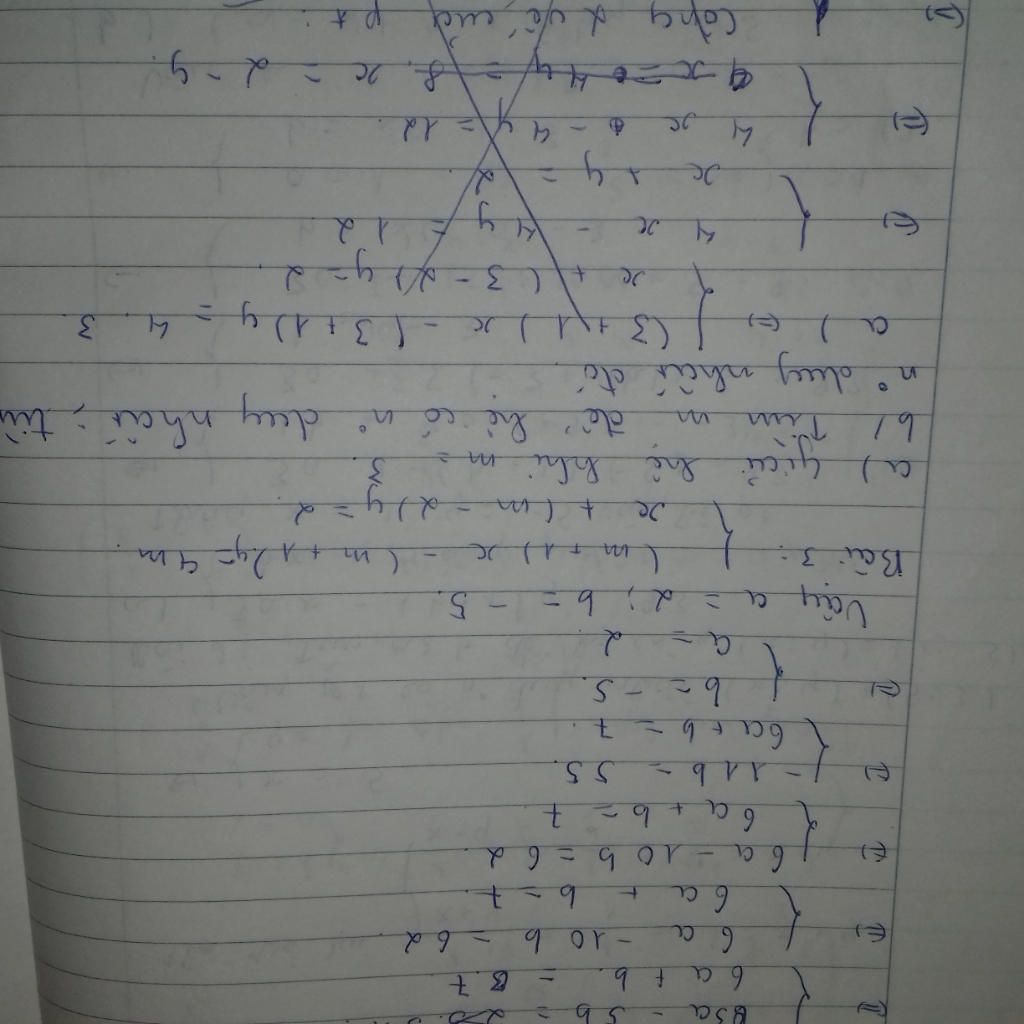 (=) { 3a - 5b =
6a + b = 7
(=) { 6a - 10b = 62
6a + b = 7
(=) { 6a - 10b = 62
6a + b = 7
(=) { - 11b = 55
6a + b = 7.
(=) { b = - 5.
a = 2
Vậy a = 2; b = - 5.
Bài 3: { (m + 1)x - (m + 1)y = 4m.
x + (m - 2)y = 2
a) Giải hệ khi m = 3.
b) Tìm m để hệ có n° duy nhất; tìm
n° duy nhất đó.
a) (=) { (3 + 1)x - (3 + 1)y = 4.3.
x + (3 - 2)y = 2.
(=) { 4x - 4y = 12
x + y = 2
(=) { 4x - 4y = 12.
x = 2 - y.
(=) Cộng 2 vế của pt: